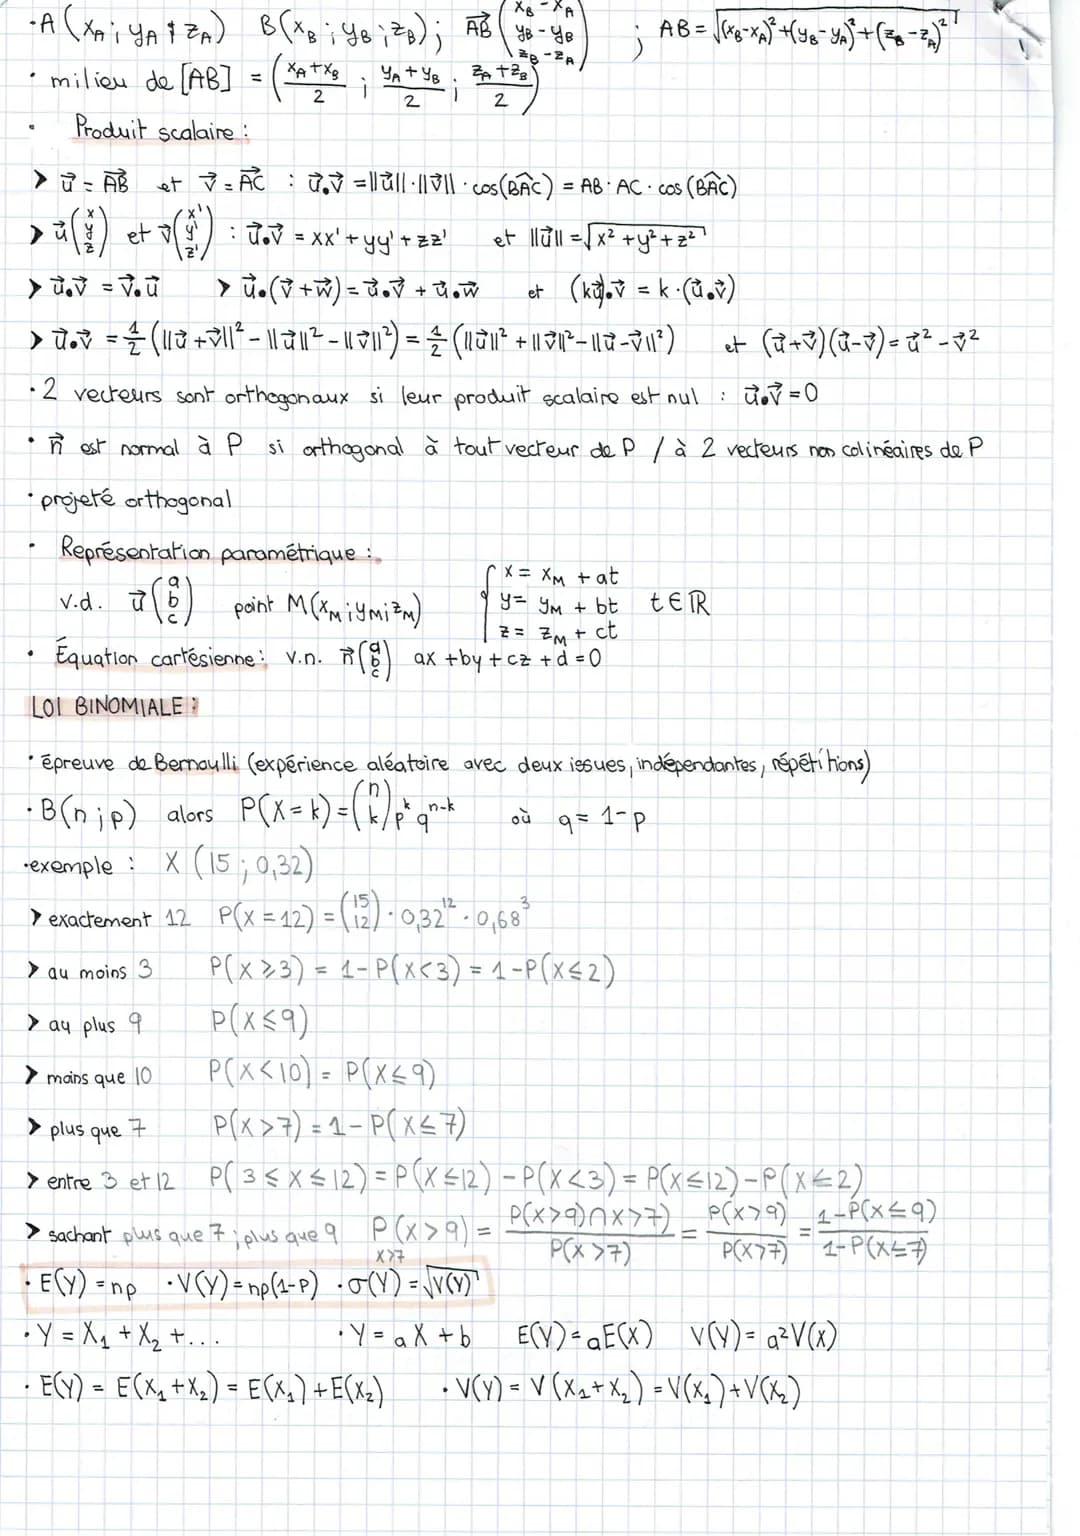 ·A (xA ; yA ; zA)  B(xB ; yB ; zB) ;  AB→ (xB - xA  yB - yB  zB - zA)  ;  AB = √(xB-xA)²+(yB-yA)²+(zB-zA)²
· milieu de [AB] = (xA+xB/2 ; yA+yB/2 ; zA+zB/2)
· Produit scalaire :
> u→ = AB→ et v→ = AC→ : u→.v→ = ||u→||·||v→||·cos(BÂC) = AB·AC·cos(BÂC)
> u→(x y z) et v→(x' y' z') : u→.v→ = xx' + yy' + zz'  et ||u→|| = √x²+y²+z²
> u→.v→ = v→.u→  > u→.(v→+w→) = u→.v→ + u→.w→  et (ku→).v→ = k·(u→.v→)
> u→.v→ = 1/2 (||u→+v→||² - ||u→||² - ||v→||²) = 1/2 (||u→||² + ||v→||² - ||u→-v→||²)  et (u→+v→)(u→-v→) = u→² - v→²
· 2 vecteurs sont orthogonaux si leur produit scalaire est nul : u→.v→ = 0
· n→ est normal à P si orthogonal à tout vecteur de P / à 2 vecteurs non colinéaires de P
· projeté orthogonal
· Représentation paramétrique :
v.d. u→(a b c)  point M(xM ; yM ; zM)  { x = xM + at  y = yM + bt  z = zM + ct  t∈ℝ
· Équation cartésienne : v.n. n→(a b c)  ax + by + cz + d = 0
LOI BINOMIALE :
· épreuve de Bernoulli (expérience aléatoire avec deux issues, indépendantes, répétitions)
· B(n ; p) alors P(X = k) = (n k) p^k q^n-k  où q = 1-p
·exemple : X (15 ; 0,32)
> exactement 12  P(X = 12) = (15 12) · 0,32^12 · 0,68^3
> au moins 3  P(X ⩾ 3) = 1 - P(X < 3) = 1 - P(X ≤ 2)
> au plus 9  P(X ≤ 9)
> moins que 10  P(X < 10) = P(X ≤ 9)
> plus que 7  P(X > 7) = 1 - P(X ≤ 7)
> entre 3 et 12  P(3 ≤ X ≤ 12) = P(X ≤ 12) - P(X < 3) = P(X ≤ 12) - P(X ≤ 2)
> sachant plus que 7 ; plus que 9  P X>7 (X > 9) = P(X>9)∩X>7)/P(X>7) = P(X>9)/P(X>7) = 1-P(X≤9)/1-P(X≤7)
· E(Y) = np  · V(Y) = np(1-p)  · σ(Y) = √V(Y)
· Y = X₁ + X₂ + ...  · Y = aX + b  E(Y) = aE(X)  V(Y) = a²V(X)
· E(Y) = E(X₁ + X₂) = E(X₁) + E(X₂)  · V(Y) = V(X₁ + X₂) = V(X₁) + V(X₂)